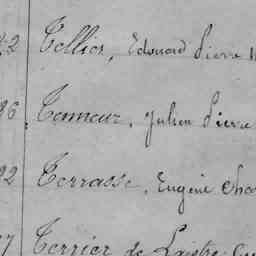 42 Tellier, Edouard Pierre
86 Tenneur, Julien Pierre
92 Terrasse, Eugène Cha
7 Terrier de Laistre